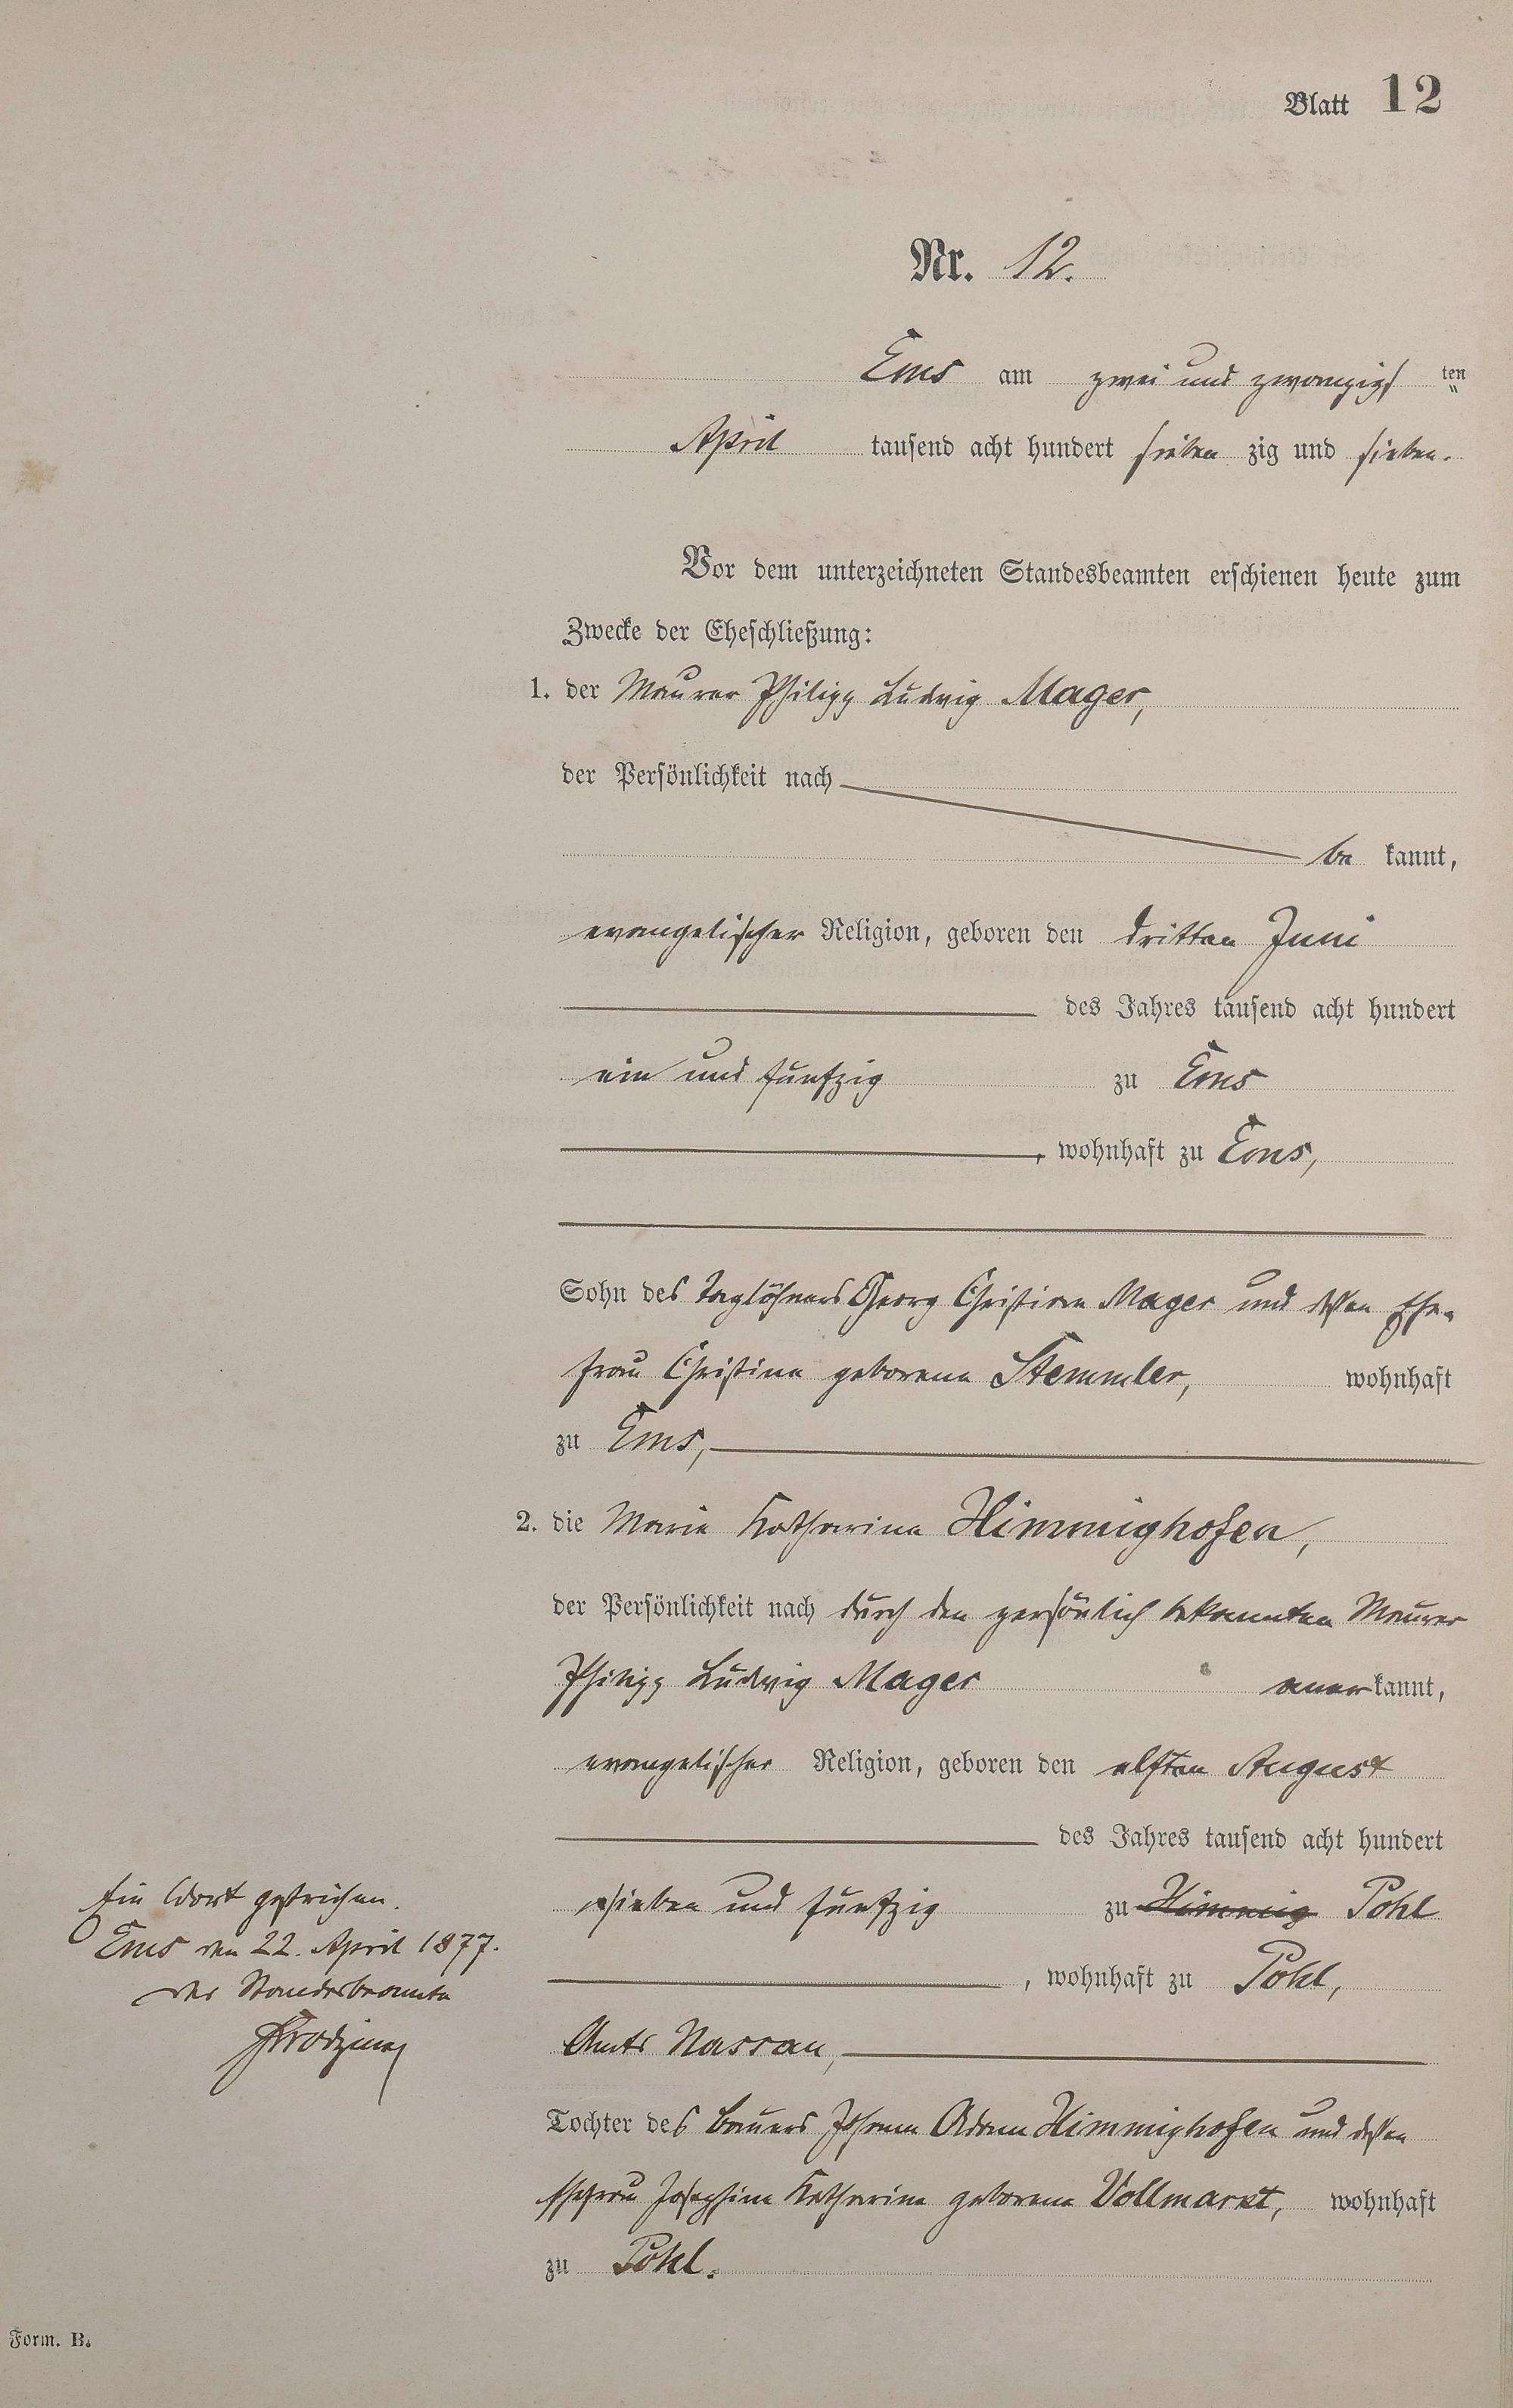 Blatt 12
Nr. 12.
Ems am zwei und zwanzigs ten
April tausend acht hundert sieben zig und sieben.
Vor dem unterzeichneten Standesbeamten erschienen heute zum
Zwecke der Eheschließung:
1. der Maurer Philipp Ludwig Mager,
der Persönlichkeit nach
be kannt,
evangelischer Religion, geboren den dritten Juni
des Jahres tausend acht hundert
ein und fünfzig zu Ems
, wohnhaft zu Ems,
Sohn des Taglöhners Georg Christian Mager und dessen Ehe-
frau Christine geborene Stemmler, wohnhaft
zu Ems,
2. die Marie Katharina Himmighofen,
der Persönlichkeit nach durch den persönlich bekannten Maurer
Philipp Ludwig Mager aner kannt,
evangelischer Religion, geboren den elften August
des Jahres tausend acht hundert
sieben und fünfzig zu Himmig Pohl
, wohnhaft zu Pohl,
Amts Nassau,
Tochter des Bauers Johann Adam Himmighofen und dessen
Ehefrau Josephine Katharina geborene Vollmarkt, wohnhaft
zu Pohl.
Ein Wort gestrichen.
Ems den 22. April 1877.
Der Standesbeamte
Form. B.